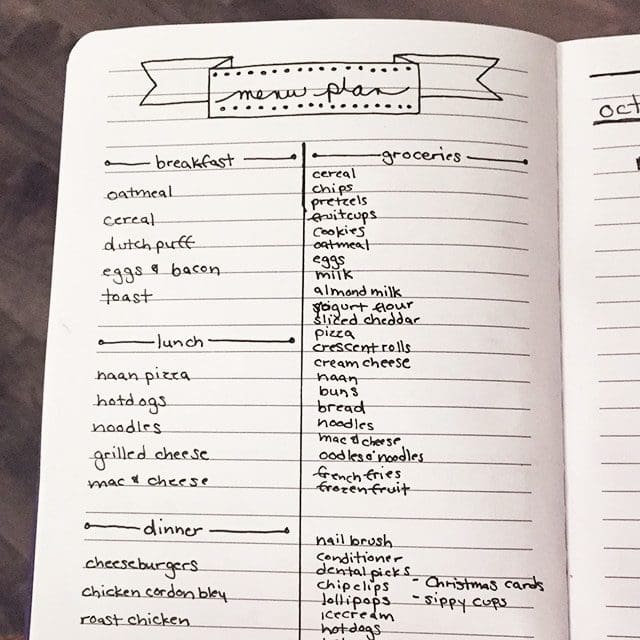 menu plan
breakfast
oatmeal
cereal
dutch puff
eggs & bacon
toast
lunch
naan pizza
hotdogs
noodles
grilled cheese
mac & cheese
dinner
cheeseburgers
chicken cordon bley
roast chicken
groceries
cereal
chips
pretzels
fruitcups
cookies
oatmeal
eggs
milk
almond milk
yogurt flour
sliced cheddar
pizza
crescent rolls
cream cheese
naan
buns
bread
noodles
mac & cheese
oodles o' noodles
french fries
frozen fruit
nail brush
conditioner
dental picks
chip clips - Christmas cards
lollipops - sippy cups
icecream
hotdogs
oct